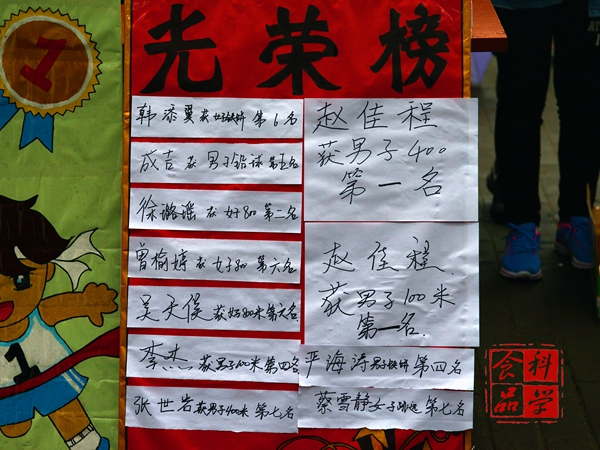 光荣榜
韩添翼 获女子铁饼 第6名
成吉 获 男子铅球 第五名
徐潞瑶 获 女子800 第二名
曾榆婷 获 女子800 第六名
获 800米 第六名
李杰 获男子100米 第四名
张世岩 获男子400米 第七名
赵佳程
获男子400
第一名
赵佳程
获男子100米
第一名.
严海涛 男子铁饼 第四名
蔡雪静 女子 第七名
1
1
食品科学